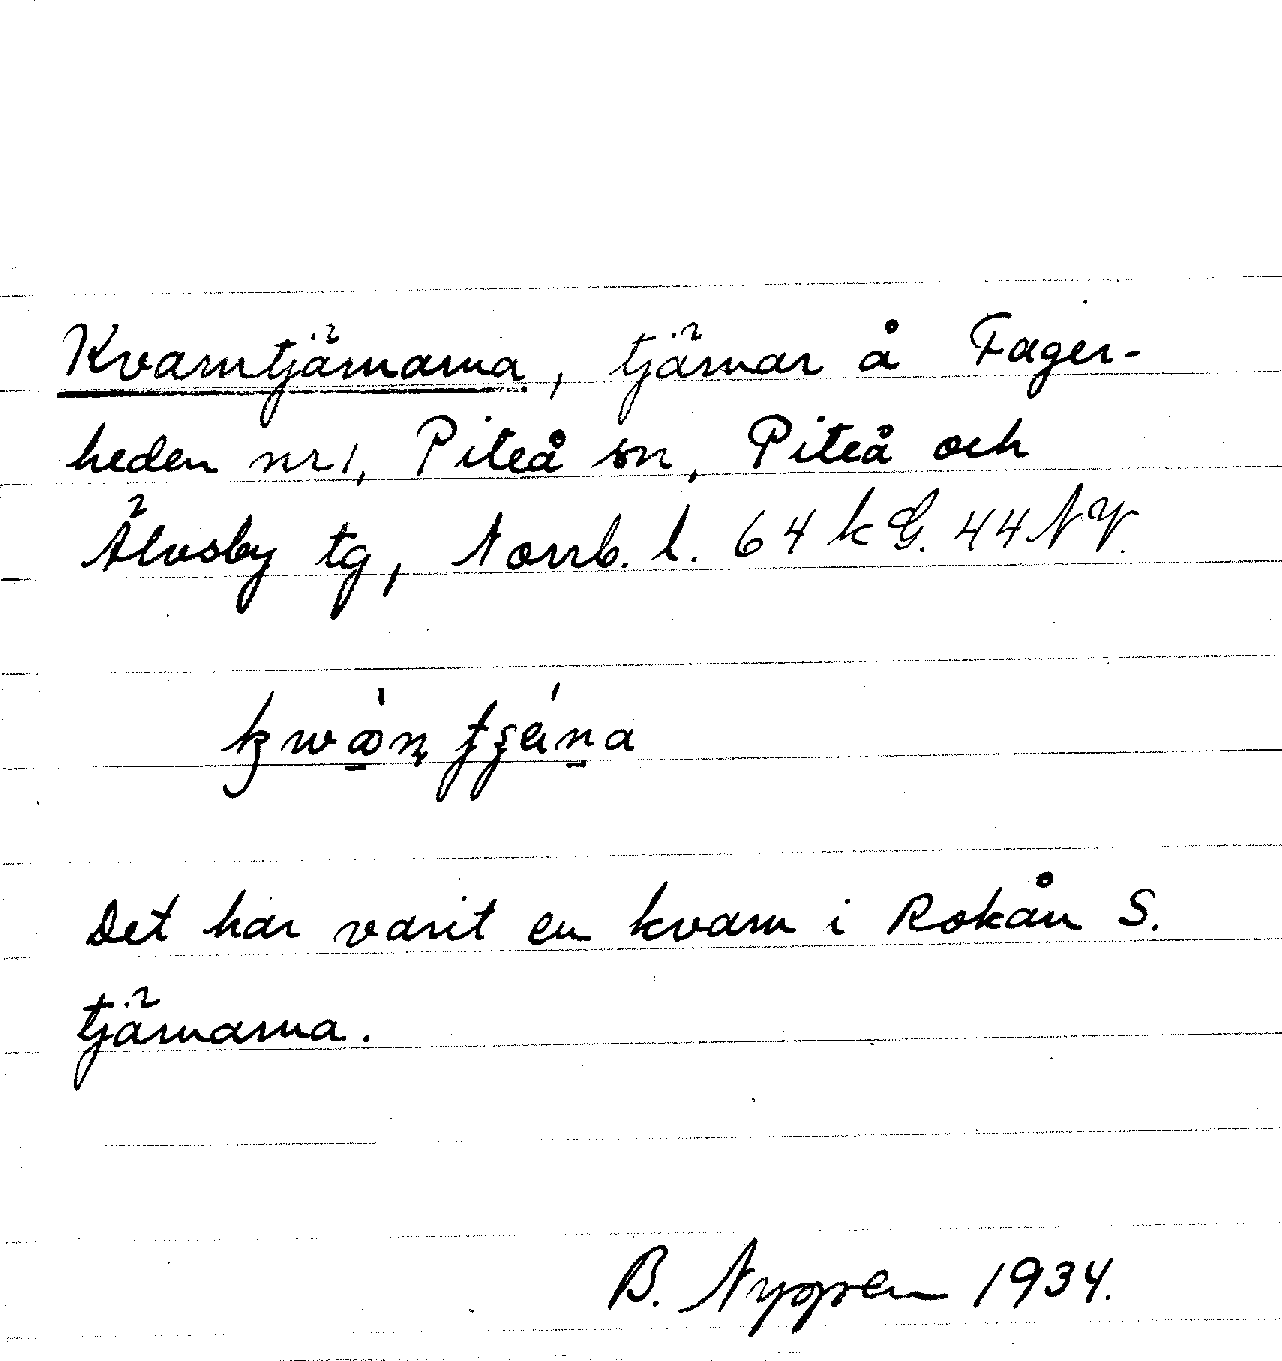 Kvarntjärnarna, tjärnar å Fager-
heden nr 1, Piteå sn, Piteå och
Älvsby tg, Norrb. l. 64 k G. 44 NV.
Det har varit en kvarn i Rokån S.
tjärnarna.
B. Nygren 1934.